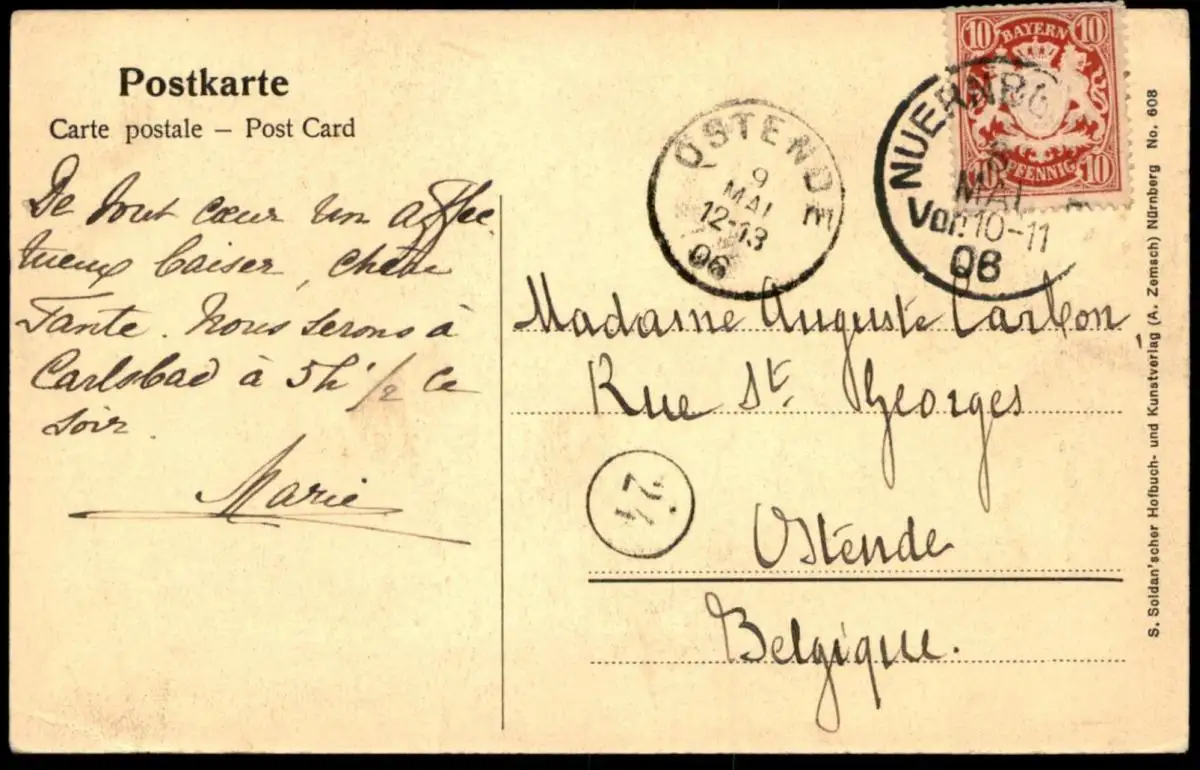 Postkarte
Carte postale – Post Card
De tout cœur un affec
tueux baiser, chère
Tante. Nous serons à
Carlsbad à 5h 1/2 ce
soir.
Marie
OSTENDE
9
MAI
12-13
06
BAYERN
10 10
10 PFENNIG 10
NUERNBG
8
MAI
Vor. 10-11
06
Madame Auguste Carbon,
Rue St. Georges
24
Ostende
Belgique.
S. Soldan'scher Hofbuch- und Kunstverlag (A. Zemsch) Nürnberg No. 608